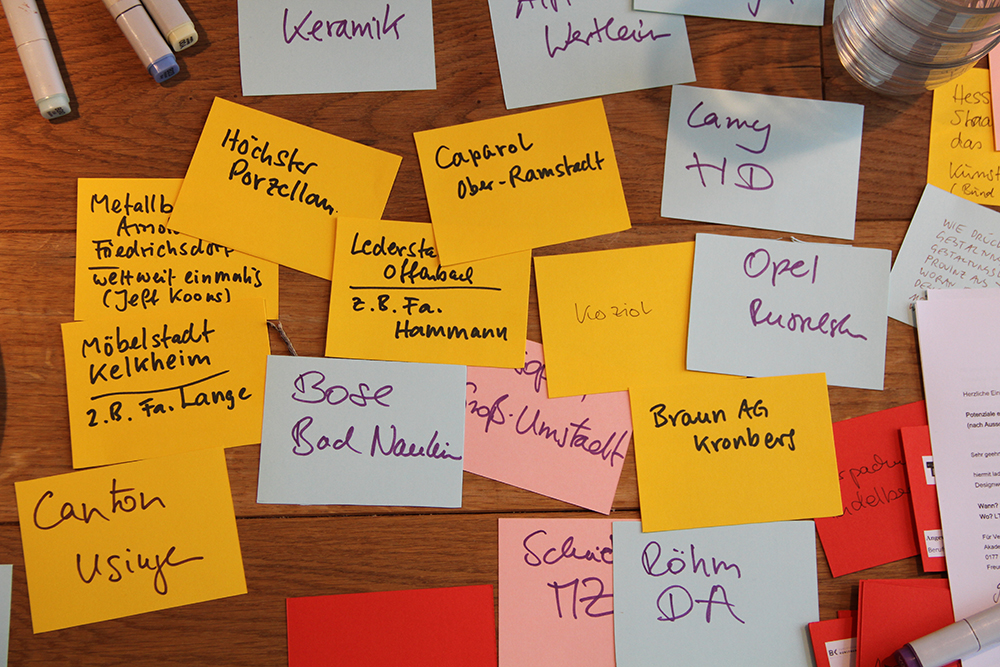 Keramik
Wertheim
Höchster
Porzellan
Caparol
Ober-Ramstadt
Lamy
HD
Hess
das
Kunst
(Bund
Metallb
Arno
Friedrichsdorf
weltweit einmalig
(Jeff Koons)
Ledersta
Offenbach
z.B. Fa.
Hammann
Koziol
Opel
Rüsselsh
WIE DRÜC
GESTALTUN
GESTALTUNGS
PROVINZ AUS
WORAN
Möbelstadt
Kelkheim
z.B. Fa. Lange
Bose
Bad Nauheim
roß-Umstadt
Braun AG
Kronberg
Herzliche Ein
Potenziale n
(nach Auss
Sehr geeh
hiermit lad
Designwe
Wann?
Wo? LT
Für Ve
Akade
0177
Freu
Canton
Usingen
Schnei
MZ
Röhm
DA